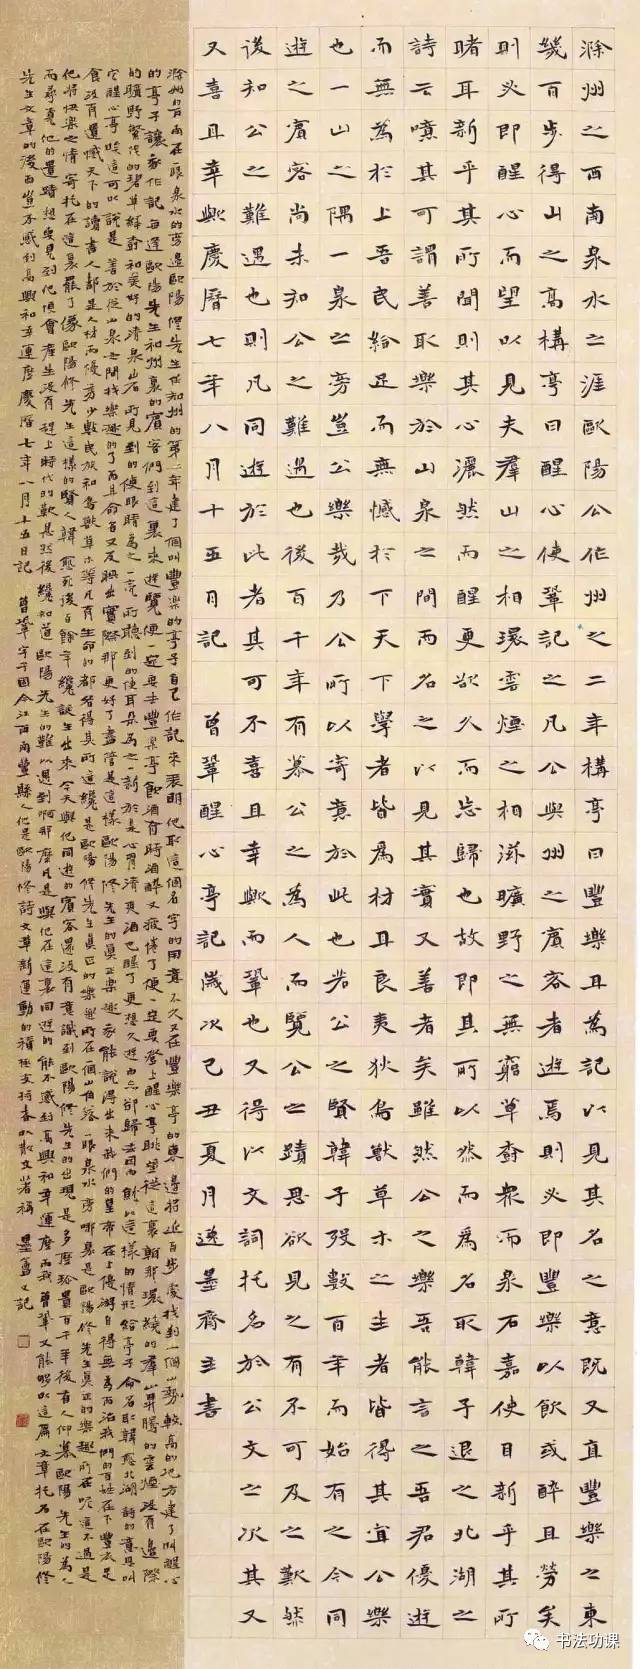 滁州之西南泉水之涯歐陽公作州之二年構亭曰豐樂且為記以見其名之意既又直豐樂之東
幾百步得山之高構亭曰醒心使鞏記之凡公與州之賓客者遊焉則必即豐樂以飲或醉且勞矣
則必即醒心而望以見夫羣山之相環雲煙之相滋曠野之無窮草樹衆而泉石嘉使目新乎其所
睹耳新乎其所聞則其心灑然而醒更欲久而忘歸也故即其所以然而為名取韓子退之北湖之
詩云噫其可謂善取樂於山泉之間而名之以見其實又善者矣雖然公之樂吾能言之吾君優遊
而無為於上吾民給足而無憾於下天下學者皆為材且良夷狄鳥獸草木之生者皆得其宜公樂
也一山之隅一泉之旁豈公樂哉乃公所以寄意於此也若公之賢韓子歿數百年而始有之今同
遊之賓客尚未知公之難遇也後百千年有慕公之為人而覽公之蹟思欲見之有不可及之歎然
後知公之難遇也則凡同遊於此者其可不喜且幸歟而鞏也又得以文詞托名於公文之次其又
又喜且幸歟慶曆七年八月十五日記 曾鞏醒心亭記歲次己丑夏月逸墨齋主書
滁州的西南在一眼泉水的旁邊歐陽修先生做知州的第二年建了個叫豐樂的亭子自己作記來表明他取這個名字的用意不久又在豐樂亭的東邊將近百步處找到一個山勢較高的地方建了叫醒心
的亭子讓我作記每逢歐陽先生和州裏的賓客們到這裏來遊覽便一定要去豐樂亭飲酒有時酒醉又疲倦了便一定要登上醒心亭眺望從這裏那環繞的羣山昇騰的雲煙沒有邊際
的曠野繁茂的碧草綠樹和美好的清泉山石所見到的使眼睛為之一亮所聽到的使耳朵為之一新於是心胃清爽酒已醒了更想久遊而忘卻歸去因而就以這樣的情形給亭子命名取韓愈北湖詩的意思叫
它醒心亭唉這可以說是善於從山泉之間找樂趣的了而其命名又反映出實際那更好了盡管是這樣歐陽修先生的真正樂趣我能說得出來我們的皇帝在上優游自得無為而治我們的百姓在下豐衣足
食沒有遺憾天下的讀書人都是人材而優秀少數民族和鳥獸草木等凡有生命的都各得其所這纔是歐陽修先生真正的樂趣所在一個山角落一眼泉水旁哪裏是歐陽修先生真正的樂趣所在呢這不過是
他將快樂之情寄托在這裏罷了像歐陽修先生這樣的賢人韓愈死後百餘年纔誕生出來今天與他同遊的賓客還沒有意識到歐陽修先生的出現是多麼珍貴百千年後有人仰慕歐陽先生的為人
而尋覓他的遺蹟想要見到他便會產生沒有趕上時代的歎息然後纔知道歐陽先生的難以遇到啊那麼凡是與他在這裏同遊的能不感到高興和幸運麼而我曾鞏又能夠以這篇文章托名在歐陽修
先生文章的後面豈不感到高興和幸運麼慶曆七年八月十五日記 曾鞏字子固今江西南豐縣人他是歐陽修詩文革新運動的積極支持者以散文著稱 墨寶又記
书法功课